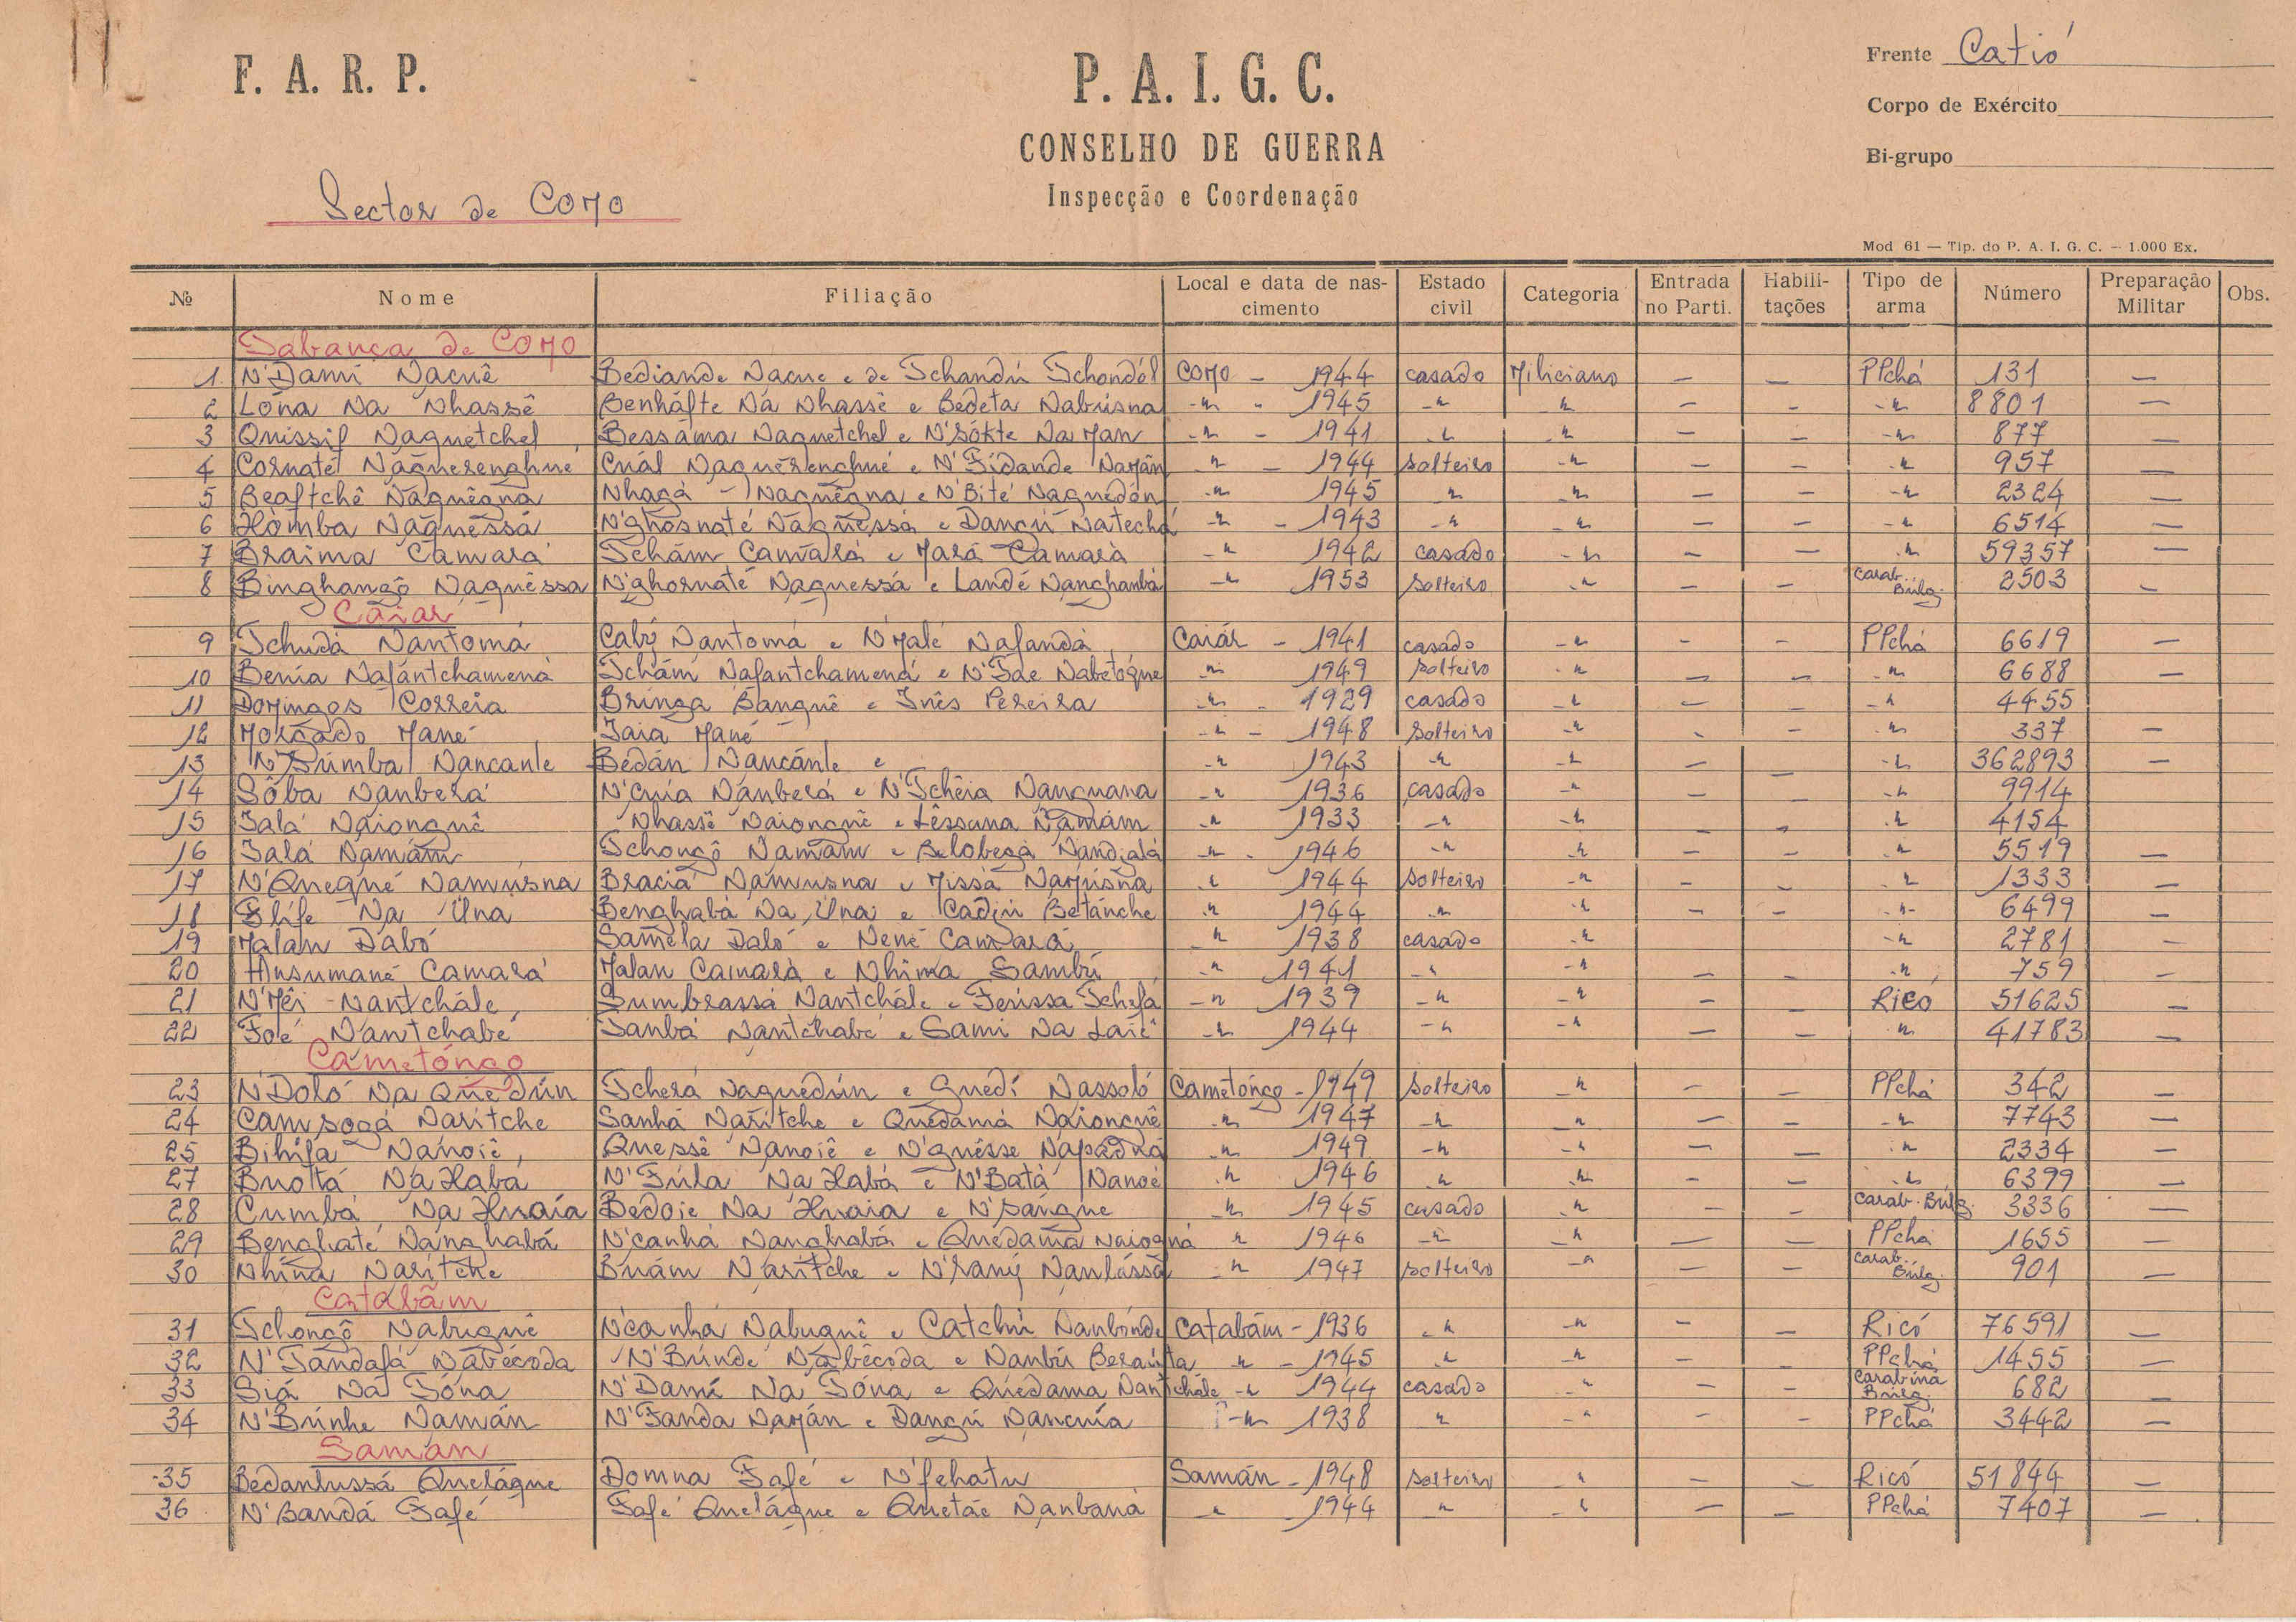 F. A. R. P.
P. A. I. G. C.
CONSELHO DE GUERRA
Inspecção e Coordenação
Frente Catió
Corpo de Exército
Bi-grupo
Sector de Como
Mod 61 — Tip. do P. A. I. G. C. — 1.000 Ex.
Nº Nome Filiação Local e data de nascimento Estado civil Categoria Entrada no Parti. Habilitações Tipo de arma Número Preparação Militar Obs.
Tabanca de Como
1 N'Dami Nacuê Bediande Nacue e de Tchandú Tchondól Como - 1944 casado Miliciano — — PPchá 131 —
2 Lóna Na Nhassê Benháfte Na Nhassê e Bedeta Nabúsna -"- 1945 -"- " — - -" 8801 —
3 Quissif Naquetchel Bessáma Naquetchel e N'Sókte Na Man -"- 1941 -" " — — -"- 877 —
4 Cornaté Naquerenghué Cuál Naquérenghué e N'Fidande Namán -" - 1944 solteiro -" — — -" 957 —
5 Beaftchê Naquêgna Nhagá Naquêgna e N'Bité Naquedón -" 1945 " -" — — -" 2324 —
6 Hómba Naquessá N'ghosnaté Naquessá e Dancú Natechá -" - 1943 -" -" — — -" 6514 —
7 Braima Camará Tchám Camará e Mará Camará -" 1942 casado -" — — -" 59357 —
8 Binghangô Naquêssa N'ghornaté Naquessá e Landé Nanghanbá -" 1953 solteiro -" — — Carab. Búlg. 2503 —
Caiar
9 Tchudá Nantomá Cabý Nantomá e N'Malé Nafandá Caiár - 1941 casado -" - - PPchá 6619 —
10 Benia Nafántchamená Tchám Nafantchamená e N'Fae Nabetóque -" 1949 solteiro -" — — -" 6688 —
11 Domingos Correia Bringa Banguê e Inês Pereira -" - 1929 casado -" — — -" 4455 —
12 Morgado Mané Iaia Mané -" - 1948 solteiro -" - — -" 337 —
13 N'Búmba Nancante Bedán Nancánte e -" 1943 -" -" — — -" 362893 —
14 Sôba Nanberá N'cuia Nánberá e N'Tchêia Nanguana -" 1936 casado -" — — -" 9914 —
15 Ialá Naionguê Nhassê Naionguê e Lêssuna Namám -" 1933 -" -" — - -" 4154
16 Ialá Namám Tchongô Namám e Belobegá Nandjalá -" - 1946 -" -" — — -" 5519 —
17 N'Quegné Namusna Braciá Namusna e Missá Namúsna -" 1944 solteiro -" — - -" 1333 —
18 Flife Na Una Benghabá Na Una e Cadjú Betánche -" 1944 -" -" — — -"- 6499 —
19 Malam Dabó Saméla Dabó e Nené Camará -" 1938 casado -" -" 2781 —
20 Ansumané Camará Malan Camará e Nhima Sambú -" 1941 -" -" — — -" 759 —
21 N'Mêi Nantchále Sumbrassá Nantchále e Ferissa Tchefá -" 1939 -" -" — Ricó 51625 —
22 Foé Nantchabé Tanbá Nantchabé e Sami Na Laié -" 1944 -" -" — — " 41783 —
Cametóngo
23 N'Doló Na Quedún Tcherá Naquedún e Quedí Nassoló Cametóngo - 1949 solteiro -" — — PPchá 342 —
24 Camsogá Naritche Sanhá Naritche e Quedamá Naionguê -" 1947 -" -" — — -" 7743 —
25 Bihifa Nanoiê Quessê Nanoiê e N'guésse Napadná -" 1949 -" -" — — -" 2334 —
27 Buottá Na Haba N'Fúla Na Habá e N'Batá Nanoé -" 1946 -" -" — — -" 6399 —
28 Cumbá Na Huaía Bedoie Na Huaia e N'sángue -" 1945 casado -" — — Carab. Búlg. 3336 —
29 Benghaté Nánghabá N'canhá Nanghabá e Quedamá Naiogná " 1946 -" -" — — PPchá 1655 —
30 Nhina Naritche Buám Naritche e N'ramý Nanlássa -" 1947 solteiro -" — — Carab. Búlg. 901 —
Catabám
31 Tchongô Nabuguê N'canhá Nabuguê e Catchú Nanbónde Catabám - 1936 -" -" — — Ricó 76591 —
32 N'Tandafá Nabécoda N'Búnde Nabêcoda e Nanbú -" - 1945 -" -" — — PPchá 1455 —
33 Siá Na Tóna N'Damí Na Tóna e Quedama Nantchále -" 1944 casado -" — — Carabina Búlg. 682 —
34 N'Búnhe Namán N'Fanda Namán e Dangú Nancuía -" 1938 " -" — - PPchá 3442 —
Saman
35 Bedanlussá Quelágue Domna Fafé e N'fehatu Samán - 1948 solteiro " — — Ricó 51844 —
36 N'Bandá Fafé Fafé Quelágue e Quetáe Nanbaná -" - 1944 -" -" — — PPchá 7407 —